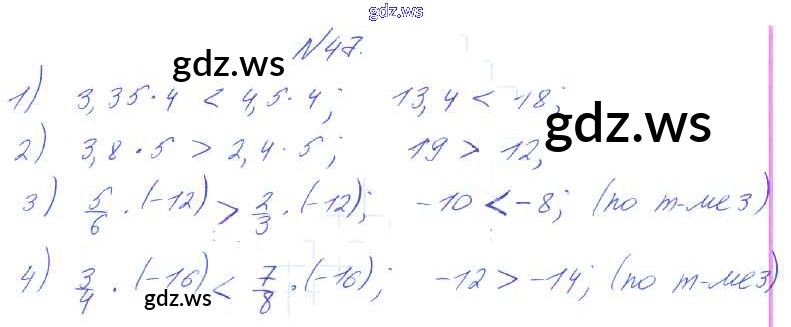 gdz.ws
N 47.
gdz.ws
1) 3,35·4 < 4,5·4; 13,4 < 18;
gdz.ws
2) 3,8·5 > 2,4·5; 19 > 12,
3) 5/6 · (-12) > 2/3 · (-12); -10 < -8; (по т-ме 3)
4) 3/4 · (-16) < 7/8 · (-16); -12 > -14; (по т-ме 3)
gdz.ws